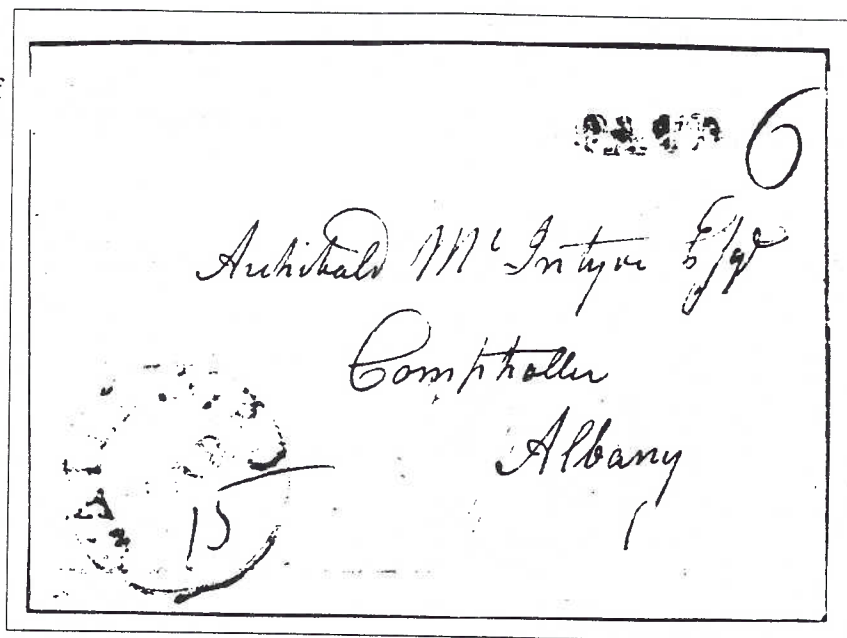 6
Archibald Mc Intyre Esqr
Comptroller
Albany
15